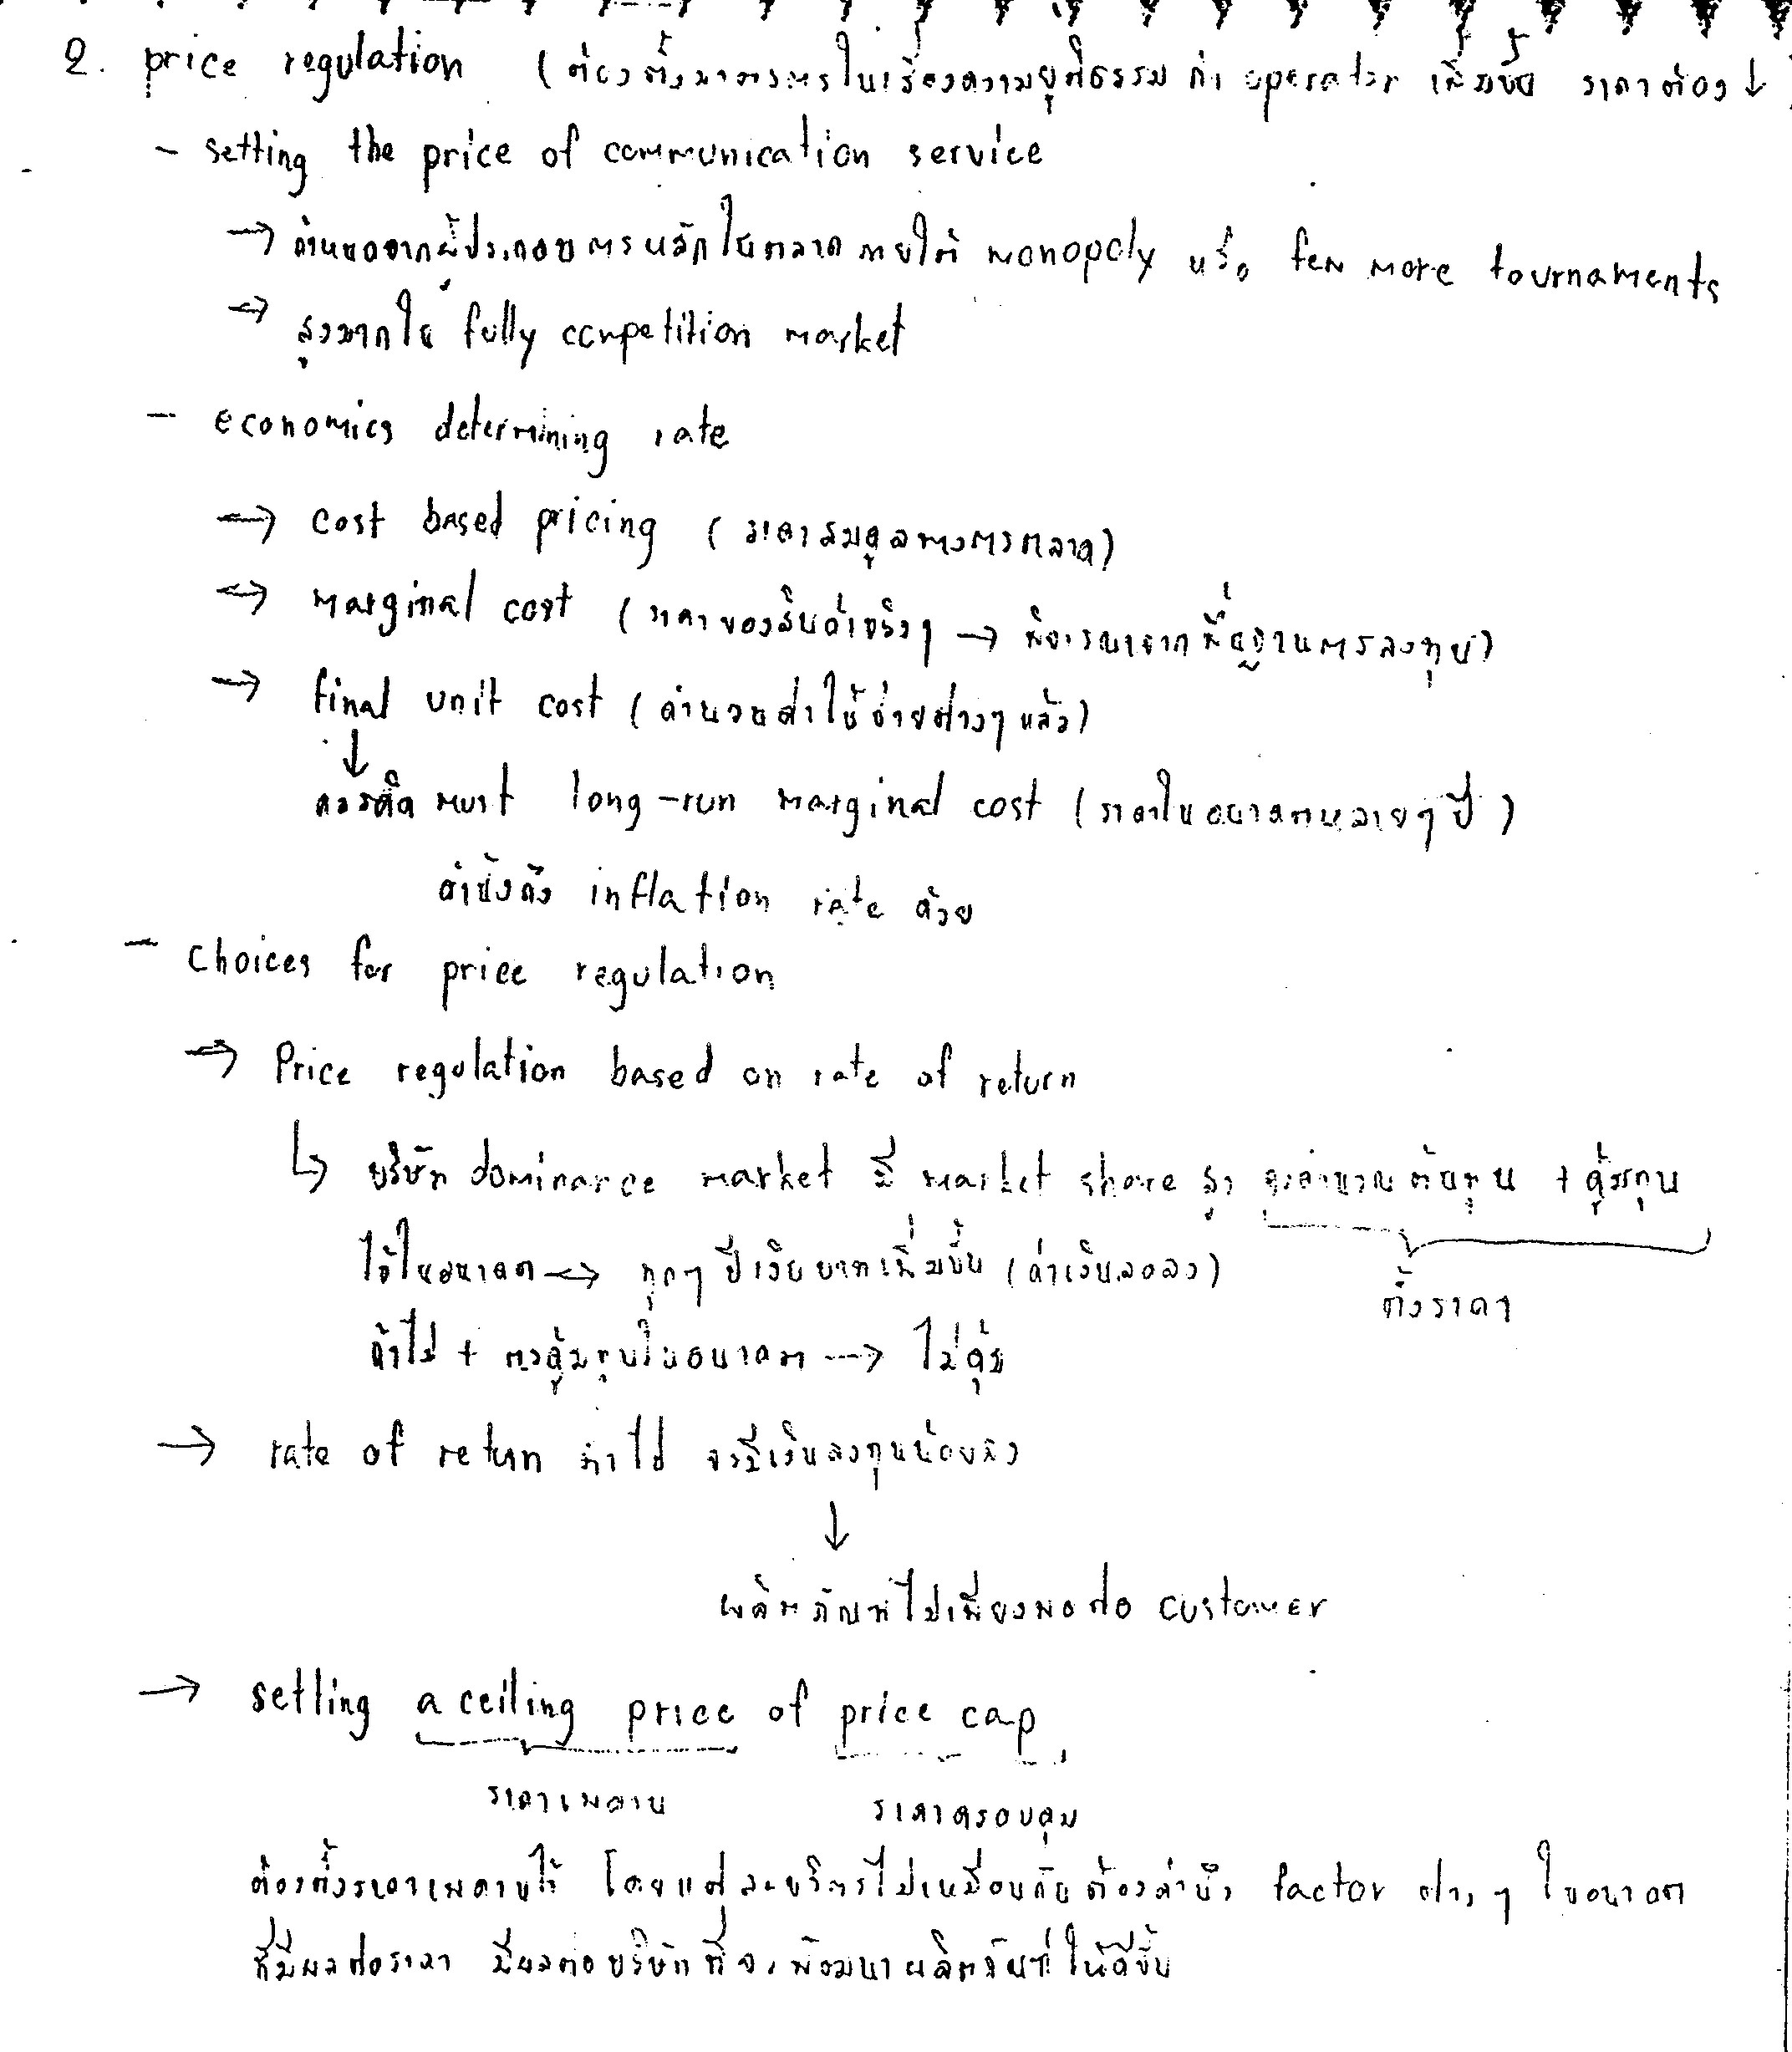 2. price regulation (ต้องตั้งมาตรการในเรื่องความยุติธรรม ถ้า operator เพิ่มขึ้น ราคาต้อง ↓
- setting the price of communication service
→ กำหนดจากผู้ประกอบการหลักในตลาดภายใต้ monopoly หรือ few more tournaments
→ สูงมากใน fully competition market
- economics determining rate
→ cost based pricing (ราคาสมดุลทางการตลาด)
→ marginal cost (ราคาของสินค้าจริงๆ → พิจารณาจากพื้นฐานการลงทุน)
→ final unit cost (คำนวนค่าใช้จ่ายต่างๆแล้ว)
↓
ควรคิด must long-run marginal cost (ราคาในอนาคตหลายๆ ปี)
inflation rate ด้วย
- choices for price regulation
→ Price regulation based on rate of return
↳ บริษัท dominance market มี market share สูง ต้นทุน + คู้มทุน
ได้ในอนาคต → ทุกๆ ปีเงินบาทเพิ่มขึ้น (ค่าเงินลดลง)
ตั้งราคา
ถ้าไม่ + การคุ้มทุนในอนาคต → ไม่คุ้ม
→ rate of return ถ้าไม่ จะมีเงินลงทุนน้อยลง
↓
ผลิตภัณฑ์ไม่เพียงพอต่อ customer
→ setting a ceiling price of price cap
ราคาเพดาน ราคาควบคุม
ต้องตั้งราคาเพดานไว้ โดยแต่ละบริการไม่เหมือนกันต้องคำนึง factor ต่างๆ ในอนาคต
ที่มีผลต่อราคา มีผลต่อบริษัทที่จะพัฒนาผลิตภัณฑ์ให้ดีขึ้น